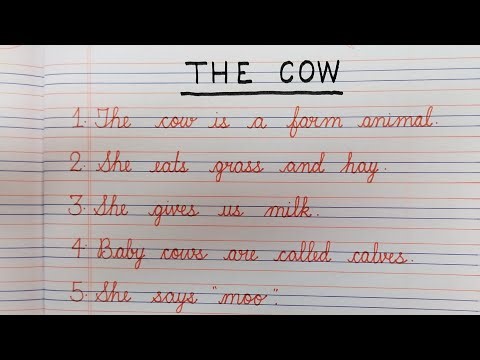 THE COW
1. The cow is a farm animal.
2. She eats grass and hay.
3. She gives us milk.
4. Baby cows are called calves.
5. She says "moo".